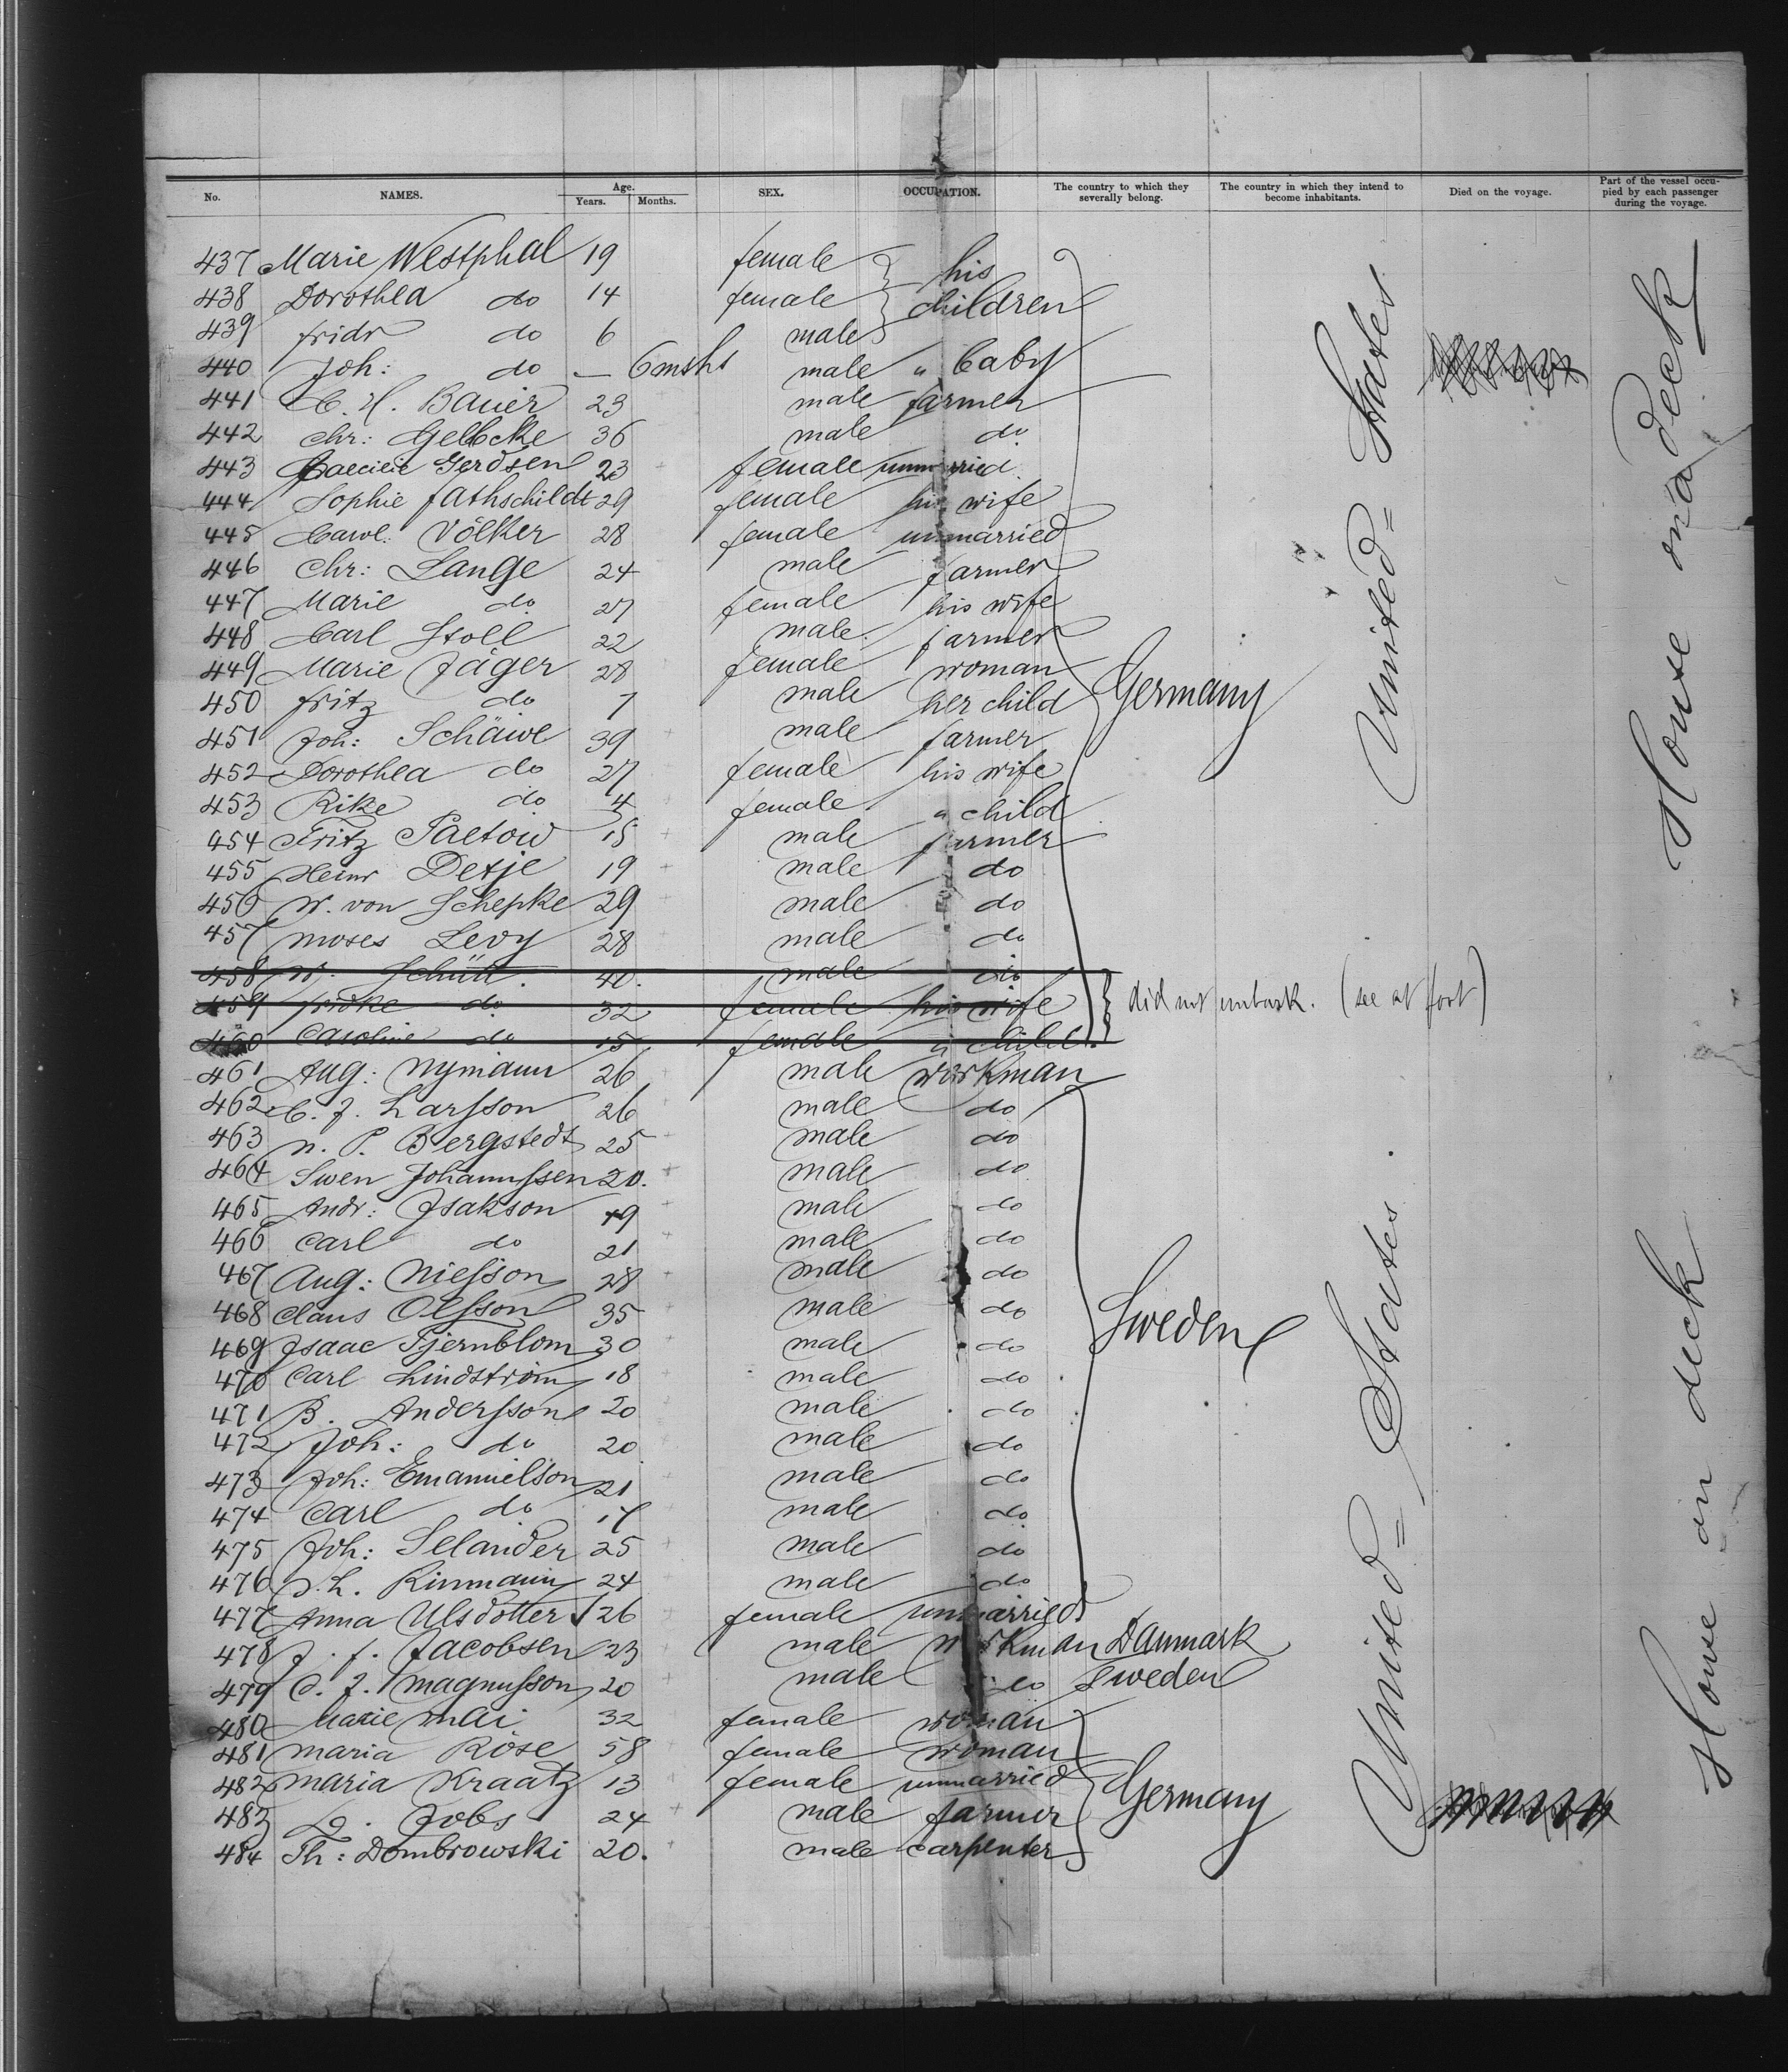 No. NAMES. Age. Years. Months. SEX. OCCUPATION. The country to which they severally belong. The country in which they intend to become inhabitants. Died on the voyage. Part of the vessel occupied by each passenger during the voyage.
437 Marie Westphal 19 female his
438 Dorothea do 14 female children
439 fridr do 6 male
440 Joh: do — 6 mths male " baby
441 C. H. Bauer 23 male farmer
442 Chr: Gelbcke 36 male do
443 Caecilie Gerdsen 23 female unmarried
444 Sophie fathschildt 29 female his wife
445 Carol. Völker 28 female unmarried
446 Chr: Lange 24 male farmer
447 Marie do 27 female his wife
448 Carl Stoll 22 male farmer
449 Marie Jäger 28 female woman
450 fritz do 7 male her child Germany
451 Joh: Schäwe 39 male farmer
452 Dorothea do 27 female his wife
453 Rike do 4 female " child
454 Fritz Paetow 15 male farmer
455 Heinr Detje 19 male do
456 W. von Schepke 29 male do
457 Moses Levy 28 male do
458 W. Schütt 40. male do
459 fridke do 32 female his wife did not embark. (see at foot)
460 Caroline do 15 female " child.
461 Aug: Nymann 26 male workman
462 C. J. Larsson 26 male do
463 N. P. Bergstedt 25 male do
464 Swen Johannssen 20. male do
465 Andr: Isakson 19 male do
466 Carl do 21 male do
467 Aug: Nielsson 28 male do
468 Claus Olsson 35 male do Sweden
469 Isaac Tjernblom 30 male do
470 Carl Lindström 18 male do
471 B. Andersson 20 male do
472 Joh: do 20 male do
473 Joh: Emanuelson 21 male do
474 Carl do 17 male do
475 Joh: Selander 25 male do
476 Rinmann 24 male do
477 Anna Ulsdotter 26 female unmarried
478 J. f. Jacobsen 23 male workman Danmark
479 C. J. Magnusson 20 male do Sweden
480 Marie Mai 32 female woman
481 Maria Rose 58 female woman
482 Maria Kraatz 13 female unmarried Germany
483 L. Jobs 24 male farmer
484 Th: Dombrowski 20. male carpenter
United= States
United= States
House on deck
House on deck